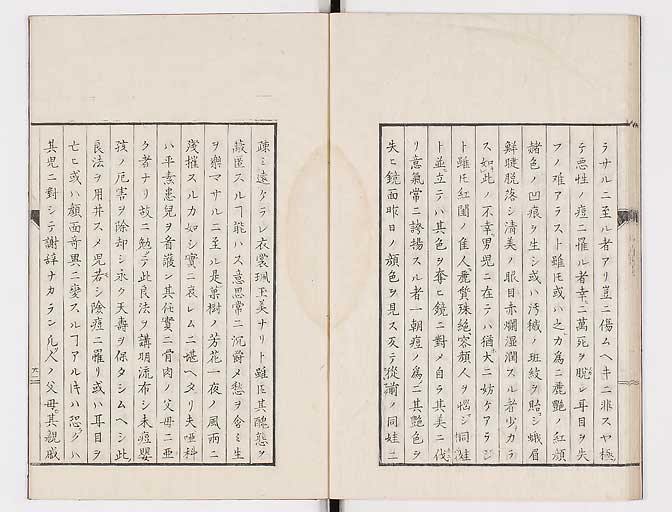 ラサルニ至ル者アリ豈ニ傷ムヘキニ非スヤ極
テ悪性ノ痘ニ罹ル者幸ニ萬死ヲ脱レ耳目ヲ失
フノ难アラスト雖𪜈或ハ之カ為ニ麗艶ノ紅顔
諸色ノ凹痕ヲ生シ或ハ汚穢ノ班紋ヲ貽シ蛾眉
鮮睫脱落シ清美ノ眼目赤爛湿潤スル者少カラ
ス如此ノ不幸男児ニ在テハ猶大ニ妨ケアラシ
ト雖𪜈紅閨ノ佳人麗質殊絶容顔人ヲ惱シ同娃
ト並立テハ其色ヲ奪ヒ鏡ニ對メ自ラ其美ニ伐
リ意氣常ニ誇揚スル者一朝痘ノ為ニ其艶色ヲ
失ヒ鏡面昨日ノ顔色ヲ見ス反テ従前ノ同娃ニ
疎ミ遠ケラレ衣裳珮玉美ナリト雖𪜈其醜態ヲ
蔵匿スルヿ能ハス意思常ニ沉爵メ愁ヲ含ミ生
ヲ樂マサルニ至ル是菓樹ノ芳花一夜ノ風雨ニ
残摧スルカ如シ實ニ哀レムニ堪ヘタリ夫唖科
ハ平素患兒ヲ育護シ其任實ニ骨肉ノ父母ニ亜
ク者ナリ故ニ勉テ此良法ヲ講明流布シ未痘嬰
孩ノ厄害ヲ除却シ永ク天壽ヲ保タシムヘシ此
良法ヲ用井スメ児若シ險痘ニ罹リ或ハ耳目ヲ
亡ヒ或ハ顔面奇異ニ變スルヿアル𪜈ハ恐クハ
其児ニ對シテ謝辞ナカラン凡人ノ父母其親戚